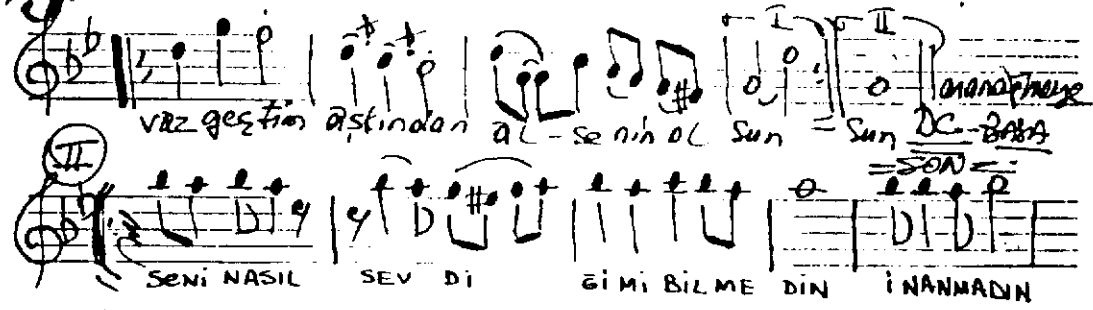 I II
vaz geçtim aşkından al - senin ol sun = Sun
DC - BAŞA
= SON =
II
SENİ NASIL SEV Dİ ĞİMİ BİLME DİN İNANMADIN